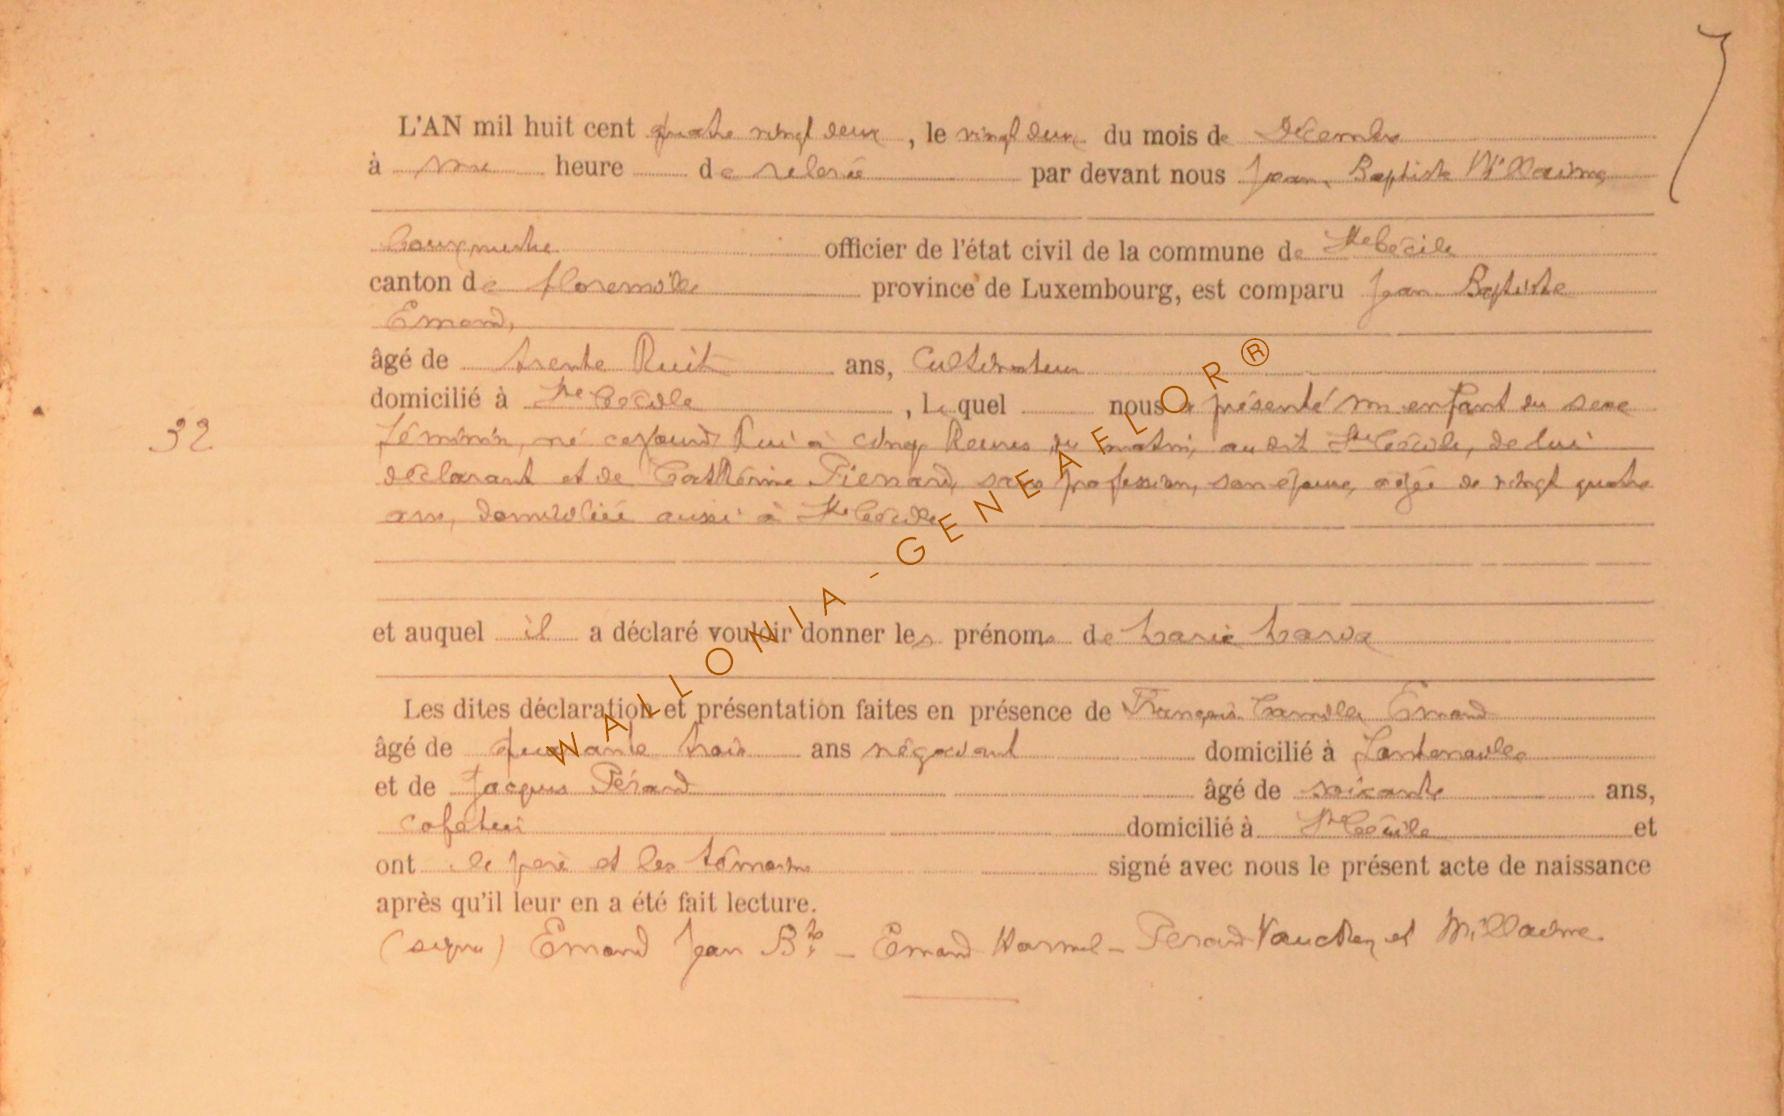 L'AN mil huit cent quatre vingt deux, le vingt deux du mois de Décembre
à une heure de relevée par devant nous Jean Baptiste Willaime
bourgmestre officier de l'état civil de la commune de Ste Cécile
canton de florenville province de Luxembourg, est comparu Jean Baptiste
Emond,
âgé de trente huit ans, Cultivateur
domicilié à Ste Cécile, Lequel nous a présenté un enfant du sexe
32
féminin, né cejourd'hui à cinq heures du matin, au dit Ste Cécile, de lui
déclarant et de Catthérine Piénard, sans profession, son épouse, agée de vingt quatre
ans, domiciliée aussi à Ste Cécile
et auquel il a déclaré vouloir donner les prénoms de Marie
Les dites déclaration et présentation faites en présence de François Camille Emond
âgé de quarante trois ans négociant domicilié à Fontenoille
et de Jacques Pérard âgé de soixante ans,
domicilié à Ste Cécile et
ont le père et les témoins signé avec nous le présent acte de naissance
après qu'il leur en a été fait lecture.
(signé) Emond Jean Bte – Emond Hormel – Perard Vauchez et Willaime.
WALLONIA-GENEAFLOR®